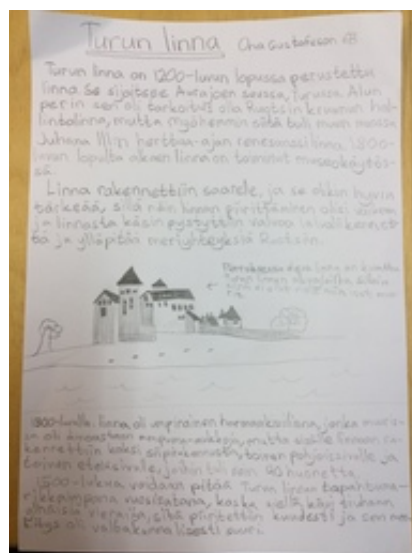 Turun linna Ona Gustafsson 6B
Turun linna on 1200-luvun lopussa perustettu
linna. Se sijaitsee Aurajoen suussa, Turussa. Alun
perin sen oli tarkoitus olla Ruotsin kruunun hal-
lintolinna, mutta myöhemmin siitä tuli muun muassa
Juhana III:n herttua-ajan renesanssilinna. 1800-
luvun lopulta alkaen linna on toiminut museokäytös-
sä.
Linna rakennettiin saarelle, ja se olikin hyvin
tärkeää, sillä näin linnan piirittäminen olisi vaikeaa
ja linnasta käsin pystyttiin valvoa laivaliikennet-
tä ja ylläpitää meriyhteyksiä Ruotsiin.
linna on kuvattu
Turun linnan
1300-luvulla linna oli umpinainen harmaakivilinna, jonka muuris-
sa oli ainoastaan ampuma-aukkoja, mutta sisälle linnaan ra-
kennettiin kaksi siipirakennusta, toinen pohjoissivulle ja
toinen eteläsivulle, joihin tuli noin 40 huonetta.
1500-lukua voidaan pitää Turun linnan tapahtuma-
rikkaimpana vuosisatana, koska siellä kävi
vieraita, sitä piiritettiin kuudesti ja sen
oli valtakunnallisesti suuri.